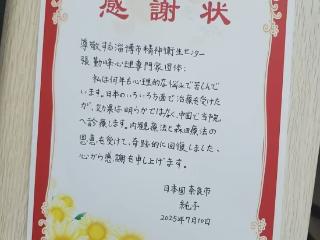 感謝状
尊敬する淄博市精神衛生センター
張勤峰心理専門家団体:
私は何年も心理的な悩みで苦しんで
います。日本のいろいろ面で治療も受けた
が、効果は明らかではなく、中国で当院
へ診療します。内観療法と森田療法の
恩恵も受けて、奇跡的に回復しました、
心から感謝も申し上げます。
日本国 奈良市
純子
2025年7月10日